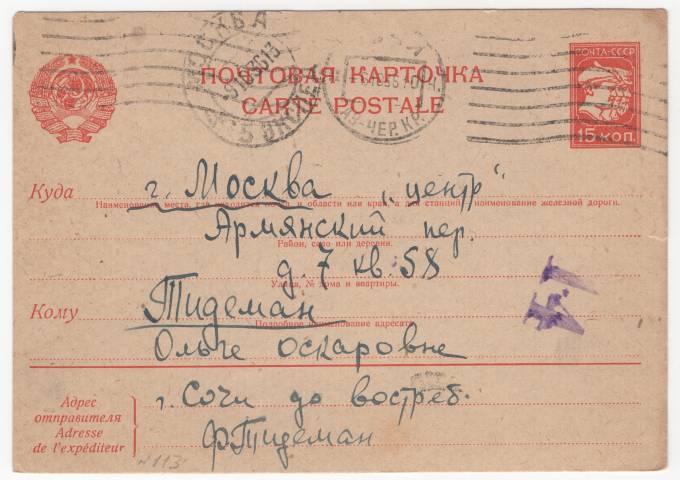 МОСКВА
ПОЧТОВАЯ КАРТОЧКА
CARTE POSTALE
ПОЧТА-СССР
15 КОП.
АЗ-ЧЕР. КР.
Куда г. Москва „центр"
Наименование места, где находится почта, и области или края, а для станций наименование железной дороги.
Армянский пер.
Район, село или деревня.
д. 7 кв. 58
Улица, № дома и квартиры.
Кому Тидеман
Подробное наименование адресата
Ольге Оскаровне
Адрес отправителя
Adresse de l'expéditeur
г. Сочи до востреб.
Ф. Тидеман